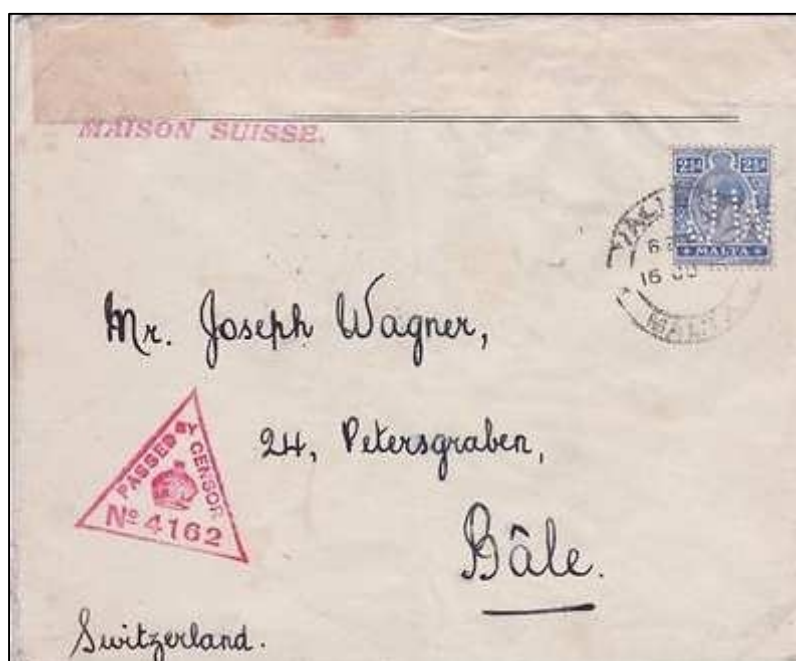 MAISON SUISSE.
2½d 2½d
MALTA
16 JU
MALTA
Mr. Joseph Wagner,
24, Petersgraben,
Bâle.
PASSED BY CENSOR
Nº 4162
Switzerland.